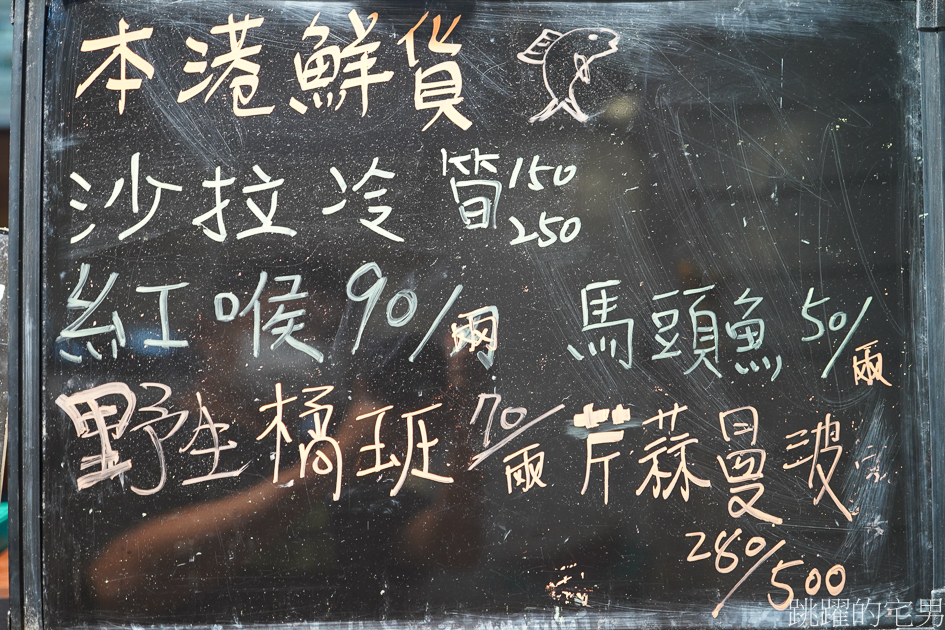 本港鮮貨
沙拉冷筍 150
250
紅喉 90/兩 馬頭魚 50/兩
野生橘班 70/兩 芹蒜曼波
280/500
跳躍的宅男